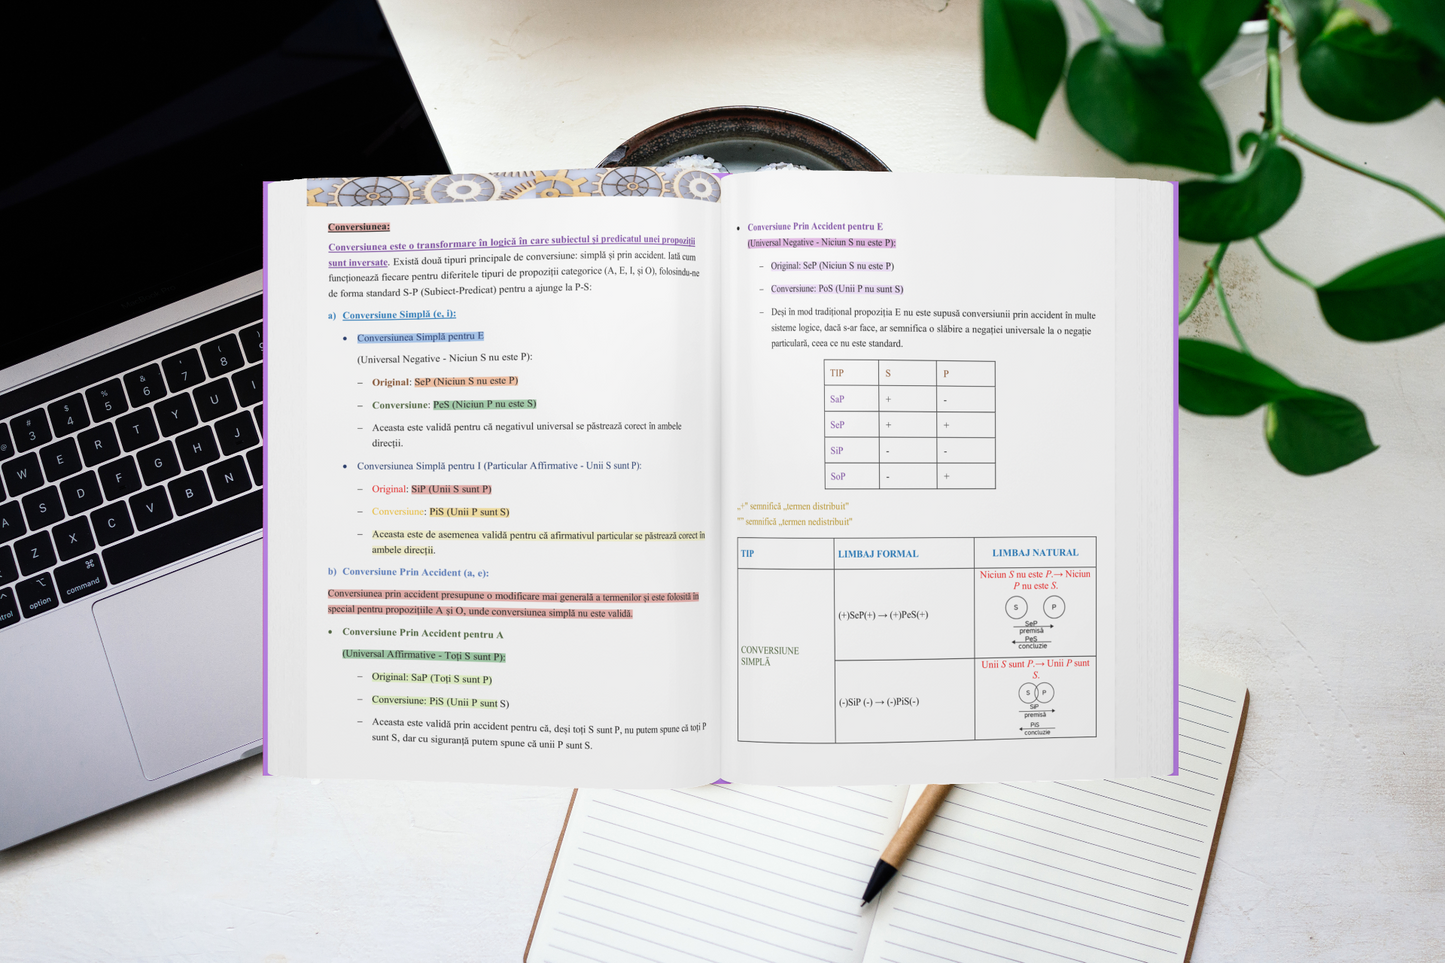 Conversiunea:
Conversiunea este o transformare în logică în care subiectul și predicatul unei propoziții
sunt inversate. Există două tipuri principale de conversiune: simplă și prin accident. Iată cum
funcționează fiecare pentru diferitele tipuri de propoziții categorice (A, E, I, și O), folosindu-ne
de forma standard S-P (Subiect-Predicat) pentru a ajunge la P-S:
a) Conversiune Simplă (e, i):
• Conversiunea Simplă pentru E
(Universal Negative - Niciun S nu este P):
– Original: SeP (Niciun S nu este P)
– Conversiune: PeS (Niciun P nu este S)
– Aceasta este validă pentru că negativul universal se păstrează corect în ambele
direcții.
• Conversiunea Simplă pentru I (Particular Affirmative - Unii S sunt P):
– Original: SiP (Unii S sunt P)
– Conversiune: PiS (Unii P sunt S)
– Aceasta este de asemenea validă pentru că afirmativul particular se păstrează corect în
ambele direcții.
b) Conversiune Prin Accident (a, e):
Conversiunea prin accident presupune o modificare mai generală a termenilor și este folosită în
special pentru propozițiile A și O, unde conversiunea simplă nu este validă.
• Conversiune Prin Accident pentru A
(Universal Affirmative - Toți S sunt P):
– Original: SaP (Toți S sunt P)
– Conversiune: PiS (Unii P sunt S)
– Aceasta este validă prin accident pentru că, deși toți S sunt P, nu putem spune că toți P
sunt S, dar cu siguranță putem spune că unii P sunt S.
• Conversiune Prin Accident pentru E
(Universal Negative - Niciun S nu este P):
– Original: SeP (Niciun S nu este P)
– Conversiune: PoS (Unii P nu sunt S)
– Deși în mod tradițional propoziția E nu este supusă conversiunii prin accident în multe
sisteme logice, dacă s-ar face, ar semnifica o slăbire a negației universale la o negație
particulară, ceea ce nu este standard.
TIP S P
SaP + -
SeP + +
SiP - -
SoP - +
„+" semnifică „termen distribuit"
"" semnifică „termen nedistribuit"
TIP LIMBAJ FORMAL LIMBAJ NATURAL
CONVERSIUNE
SIMPLĂ
(+)SeP(+) → (+)PeS(+)
Niciun S nu este P.→ Niciun
P nu este S.
S P
SeP
premisă
PeS
concluzie
(-)SiP (-) → (-)PiS(-)
Unii S sunt P.→ Unii P sunt
S.
S P
SiP
premisă
PiS
concluzie
# 3
$ 4
% 5
^ 6
& 7
* 8
( 9
W E R T Y U I
S D F G H J
Z X C V B N
option
⌘
command